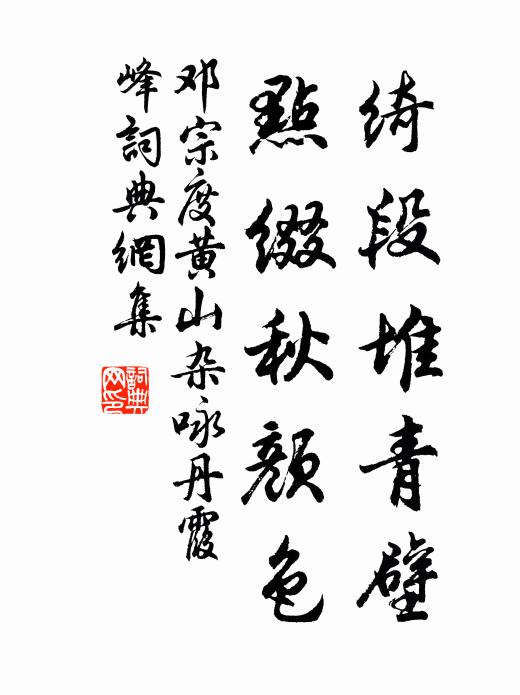 綺段堆青壁
點綴秋顏色
邓宗度黄山杂咏丹霞
峰詞典網集
詞典网印